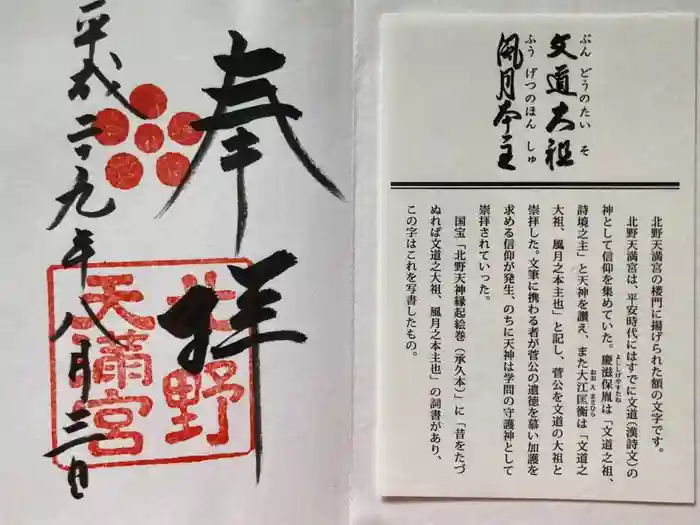 文道大祖
ぶん どうのたい そ
風月本主
ふう げつのほん しゅ
北野天満宮の楼門に掲げられた額の文字です。
北野天満宮は、平安時代にはすでに文道（漢詩文）の
神として信仰を集めていた。慶滋保胤は「文道之祖、
よししげやすたね
詩境之主」と天神を讃え、また大江匡衡は「文道之
おおえ まさひら
大祖、風月之本主也」と記し、菅公を文道の大祖と
崇拝した。文筆に携わる者が菅公の遺徳を慕い加護を
求める信仰が発生、のちに天神は学問の守護神として
崇拝されていった。
国宝「北野天神縁起絵巻（承久本）」に「昔をたづ
ぬれば文道之大祖、風月之本主也」の詞書があり、
この字はこれを写書したもの。
奉拝
北野
天滿宮
平成二九年八月三日